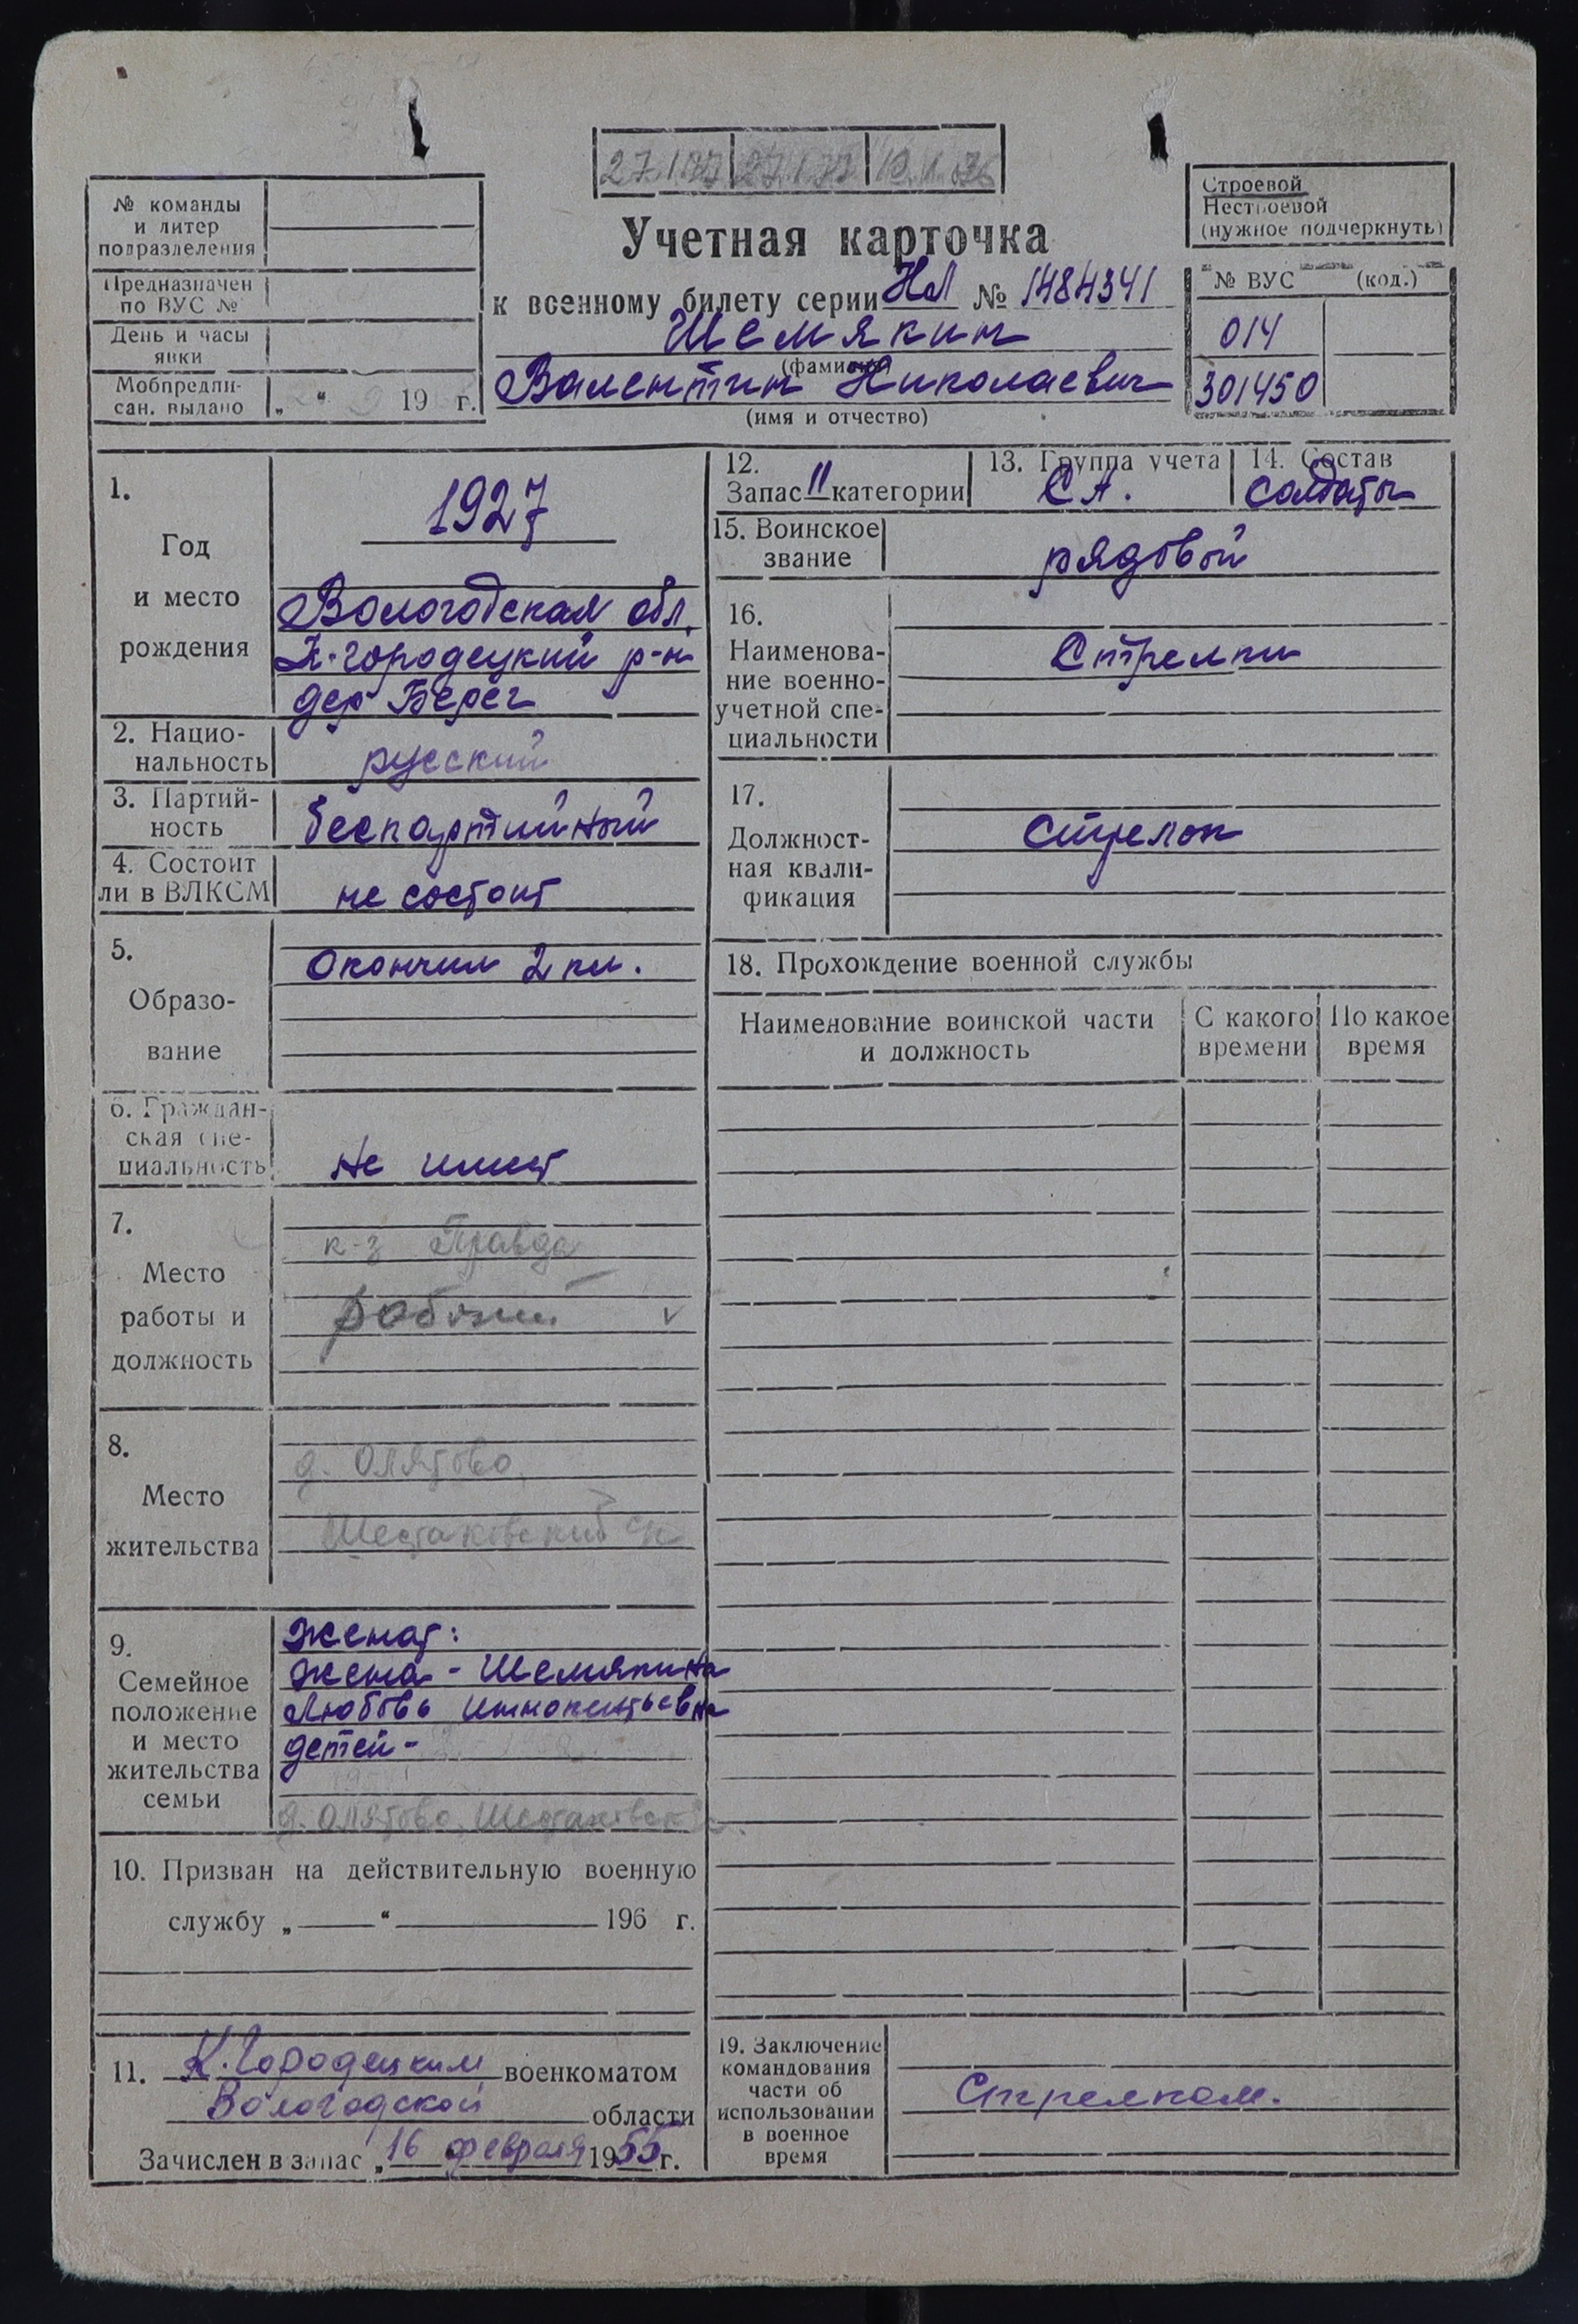 27.1.77 27.1.77 19.1.76
№ команды
и литер
подразделения
Предназначен
по ВУС №
День и часы
явки
Мобпредпи-
сан. выдано „ “ 19 г.
Учетная карточка
к военному билету серии НЛ № 1484341
Шемякин
(фамилия)
Валентин Николаевич
(имя и отчество)
Строевой
Нестроевой
(нужное подчеркнуть)
№ ВУС (код.)
014
301450
1.
Год
и место
рождения
1927
Вологодская обл.
К-городецкий р-н
дер Берег
2. Нацио-
нальность
русский
3. Партий-
ность
беспартийный
4. Состоит
ли в ВЛКСМ
не состоит
5.
Образо-
вание
Окончил 2 кл.
6. Граждан-
ская спе-
циальность
не имеет
7.
Место
работы и
должность
к-з Правда
рабочий
8.
Место
жительства
д. Олятово,
Шестаковский с/с
9.
Семейное
положение
и место
жительства
семьи
Женат:
жена - Шемякина
Любовь Иннокентьевна
детей -
д. Олятово, Шестаковск
10. Призван на действительную военную
службу „ “ 196 г.
11. К.Городецким военкоматом
Вологодской области
Зачислен в запас „16 февраля 1955 г.
12.
Запас II категории
13. Группа учета
СА.
14. Состав
солдаты
15. Воинское
звание
рядовой
16.
Наименова-
ние военно-
учетной спе-
циальности
Стрелки
17.
Должност-
ная квали-
фикация
стрелок
18. Прохождение военной службы
Наименование воинской части
и должность
С какого
времени
По какое
время
19. Заключение
командования
части об
использовании
в военное
время
Стрелком.